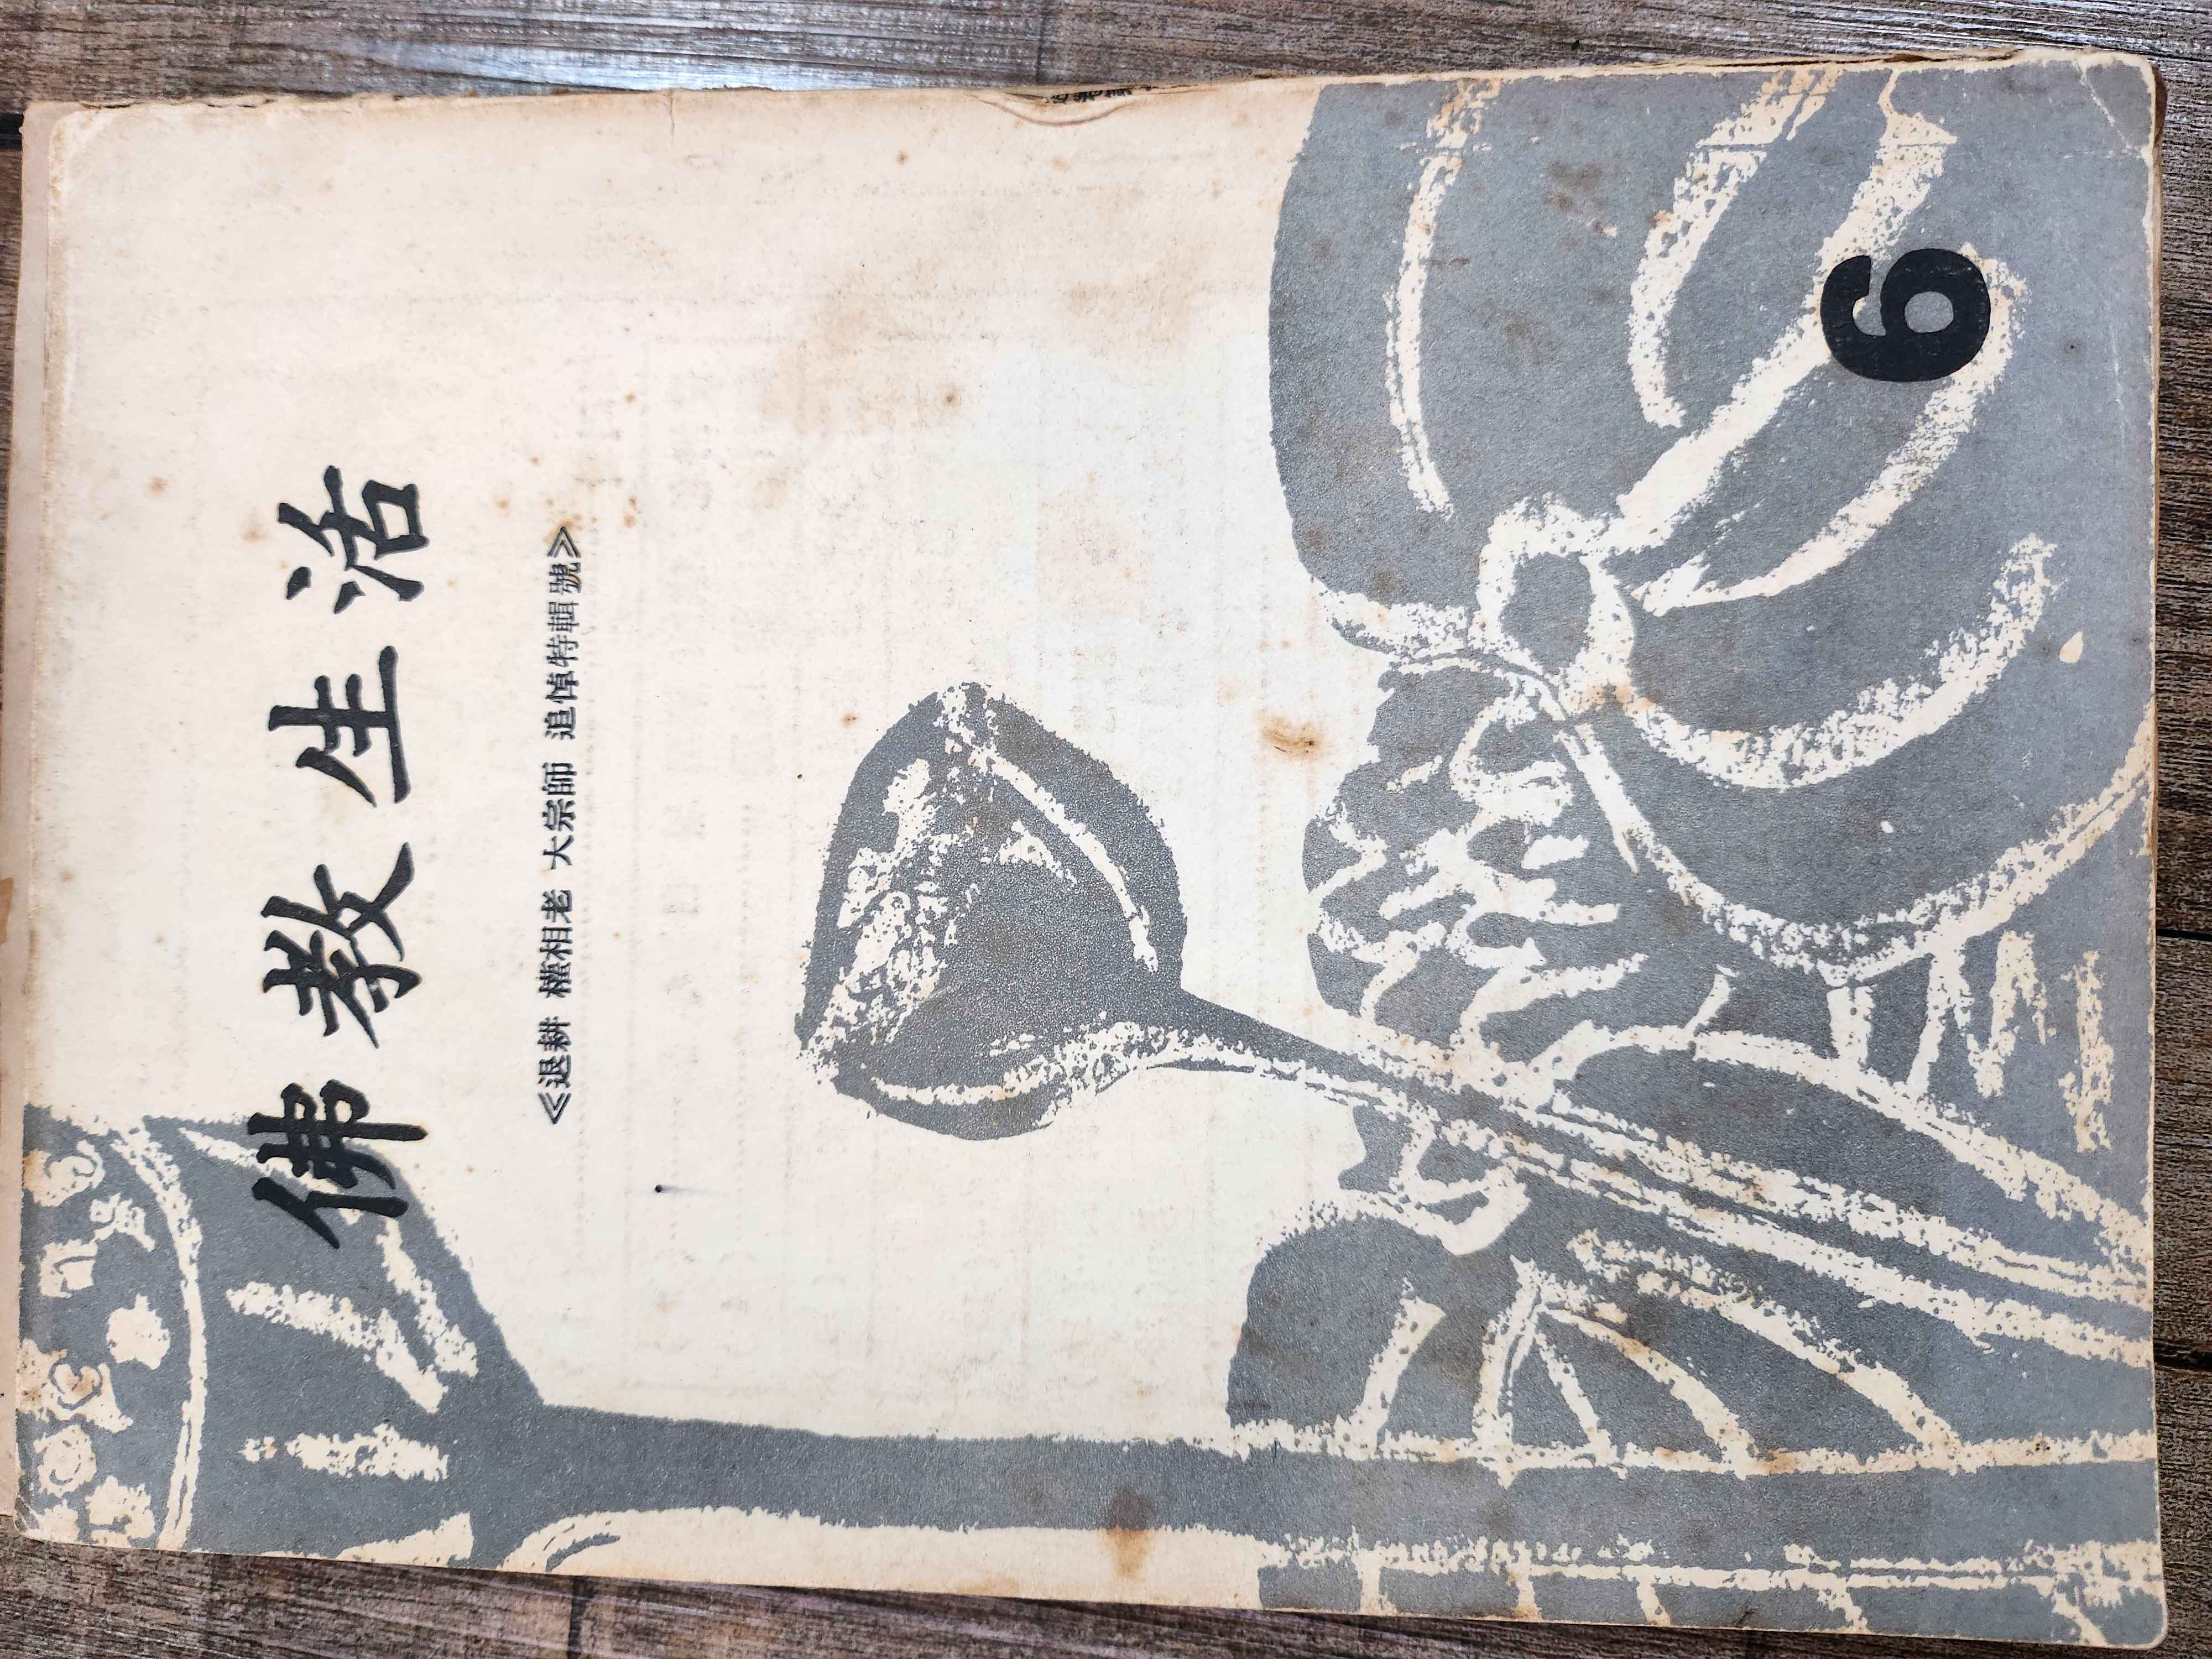 佛教生活
≪退耕 權相老 大宗師 追悼特輯號≫
6